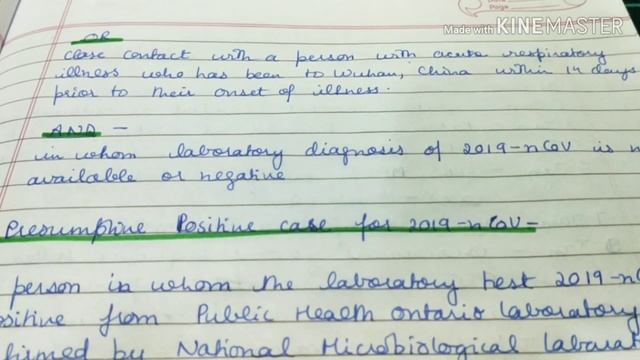 Page
Made with KINEMASTER
OR
Close contact with a person with acute respiratory
illness who has been to Wuhan, China within 14 days
prior to their onset of illness.
AND -
in whom laboratory diagnosis of 2019-nCoV is n
available or negative
Presumptive Positive case for 2019-nCoV-
person in whom the laboratory test 2019-nC
ositive from Public Health Ontario laboratory
firmed by National Microbiological laborat